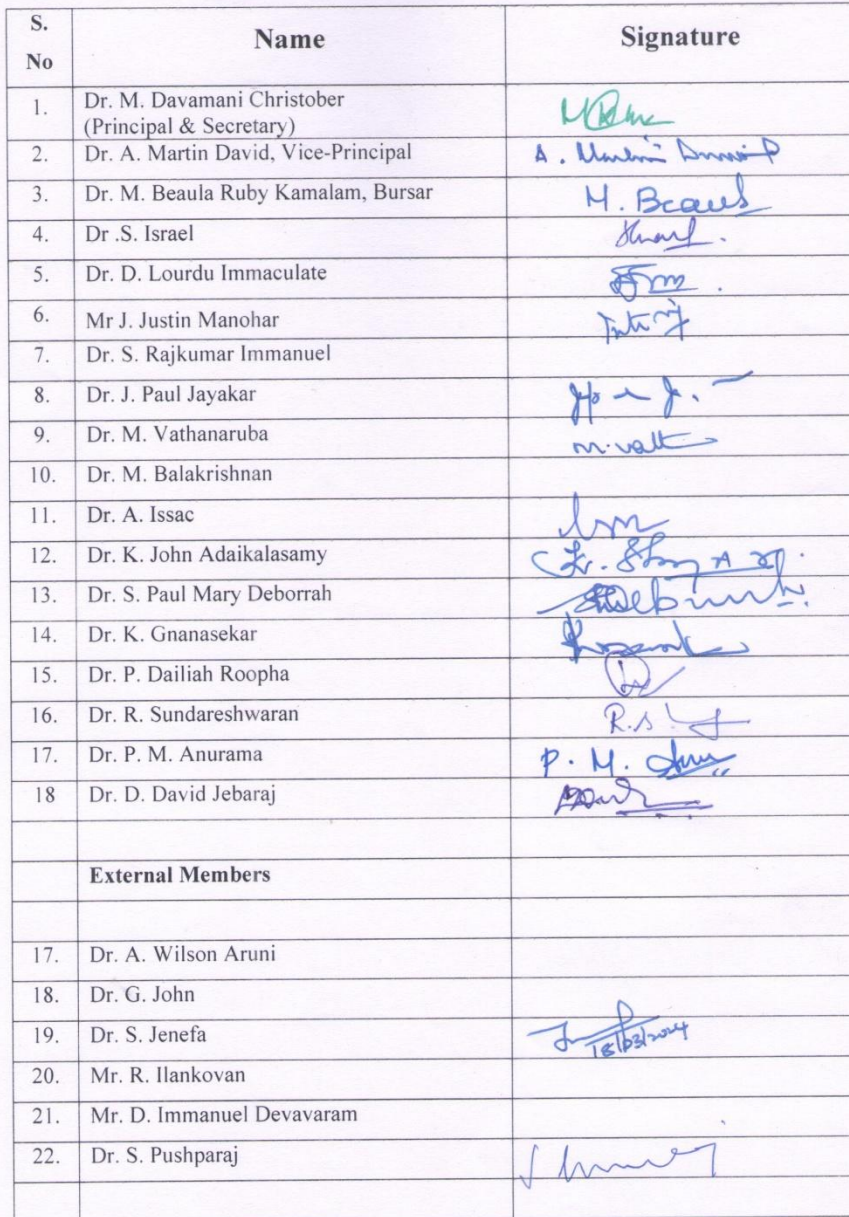 S. No Name Signature
1. Dr. M. Davamani Christober
(Principal & Secretary)
2. Dr. A. Martin David, Vice-Principal A. Martin David
3. Dr. M. Beaula Ruby Kamalam, Bursar M. Beaula
4. Dr .S. Israel
5. Dr. D. Lourdu Immaculate
6. Mr J. Justin Manohar
7. Dr. S. Rajkumar Immanuel
8. Dr. J. Paul Jayakar
9. Dr. M. Vathanaruba
10. Dr. M. Balakrishnan
11. Dr. A. Issac
12. Dr. K. John Adaikalasamy
13. Dr. S. Paul Mary Deborrah
14. Dr. K. Gnanasekar
15. Dr. P. Dailiah Roopha
16. Dr. R. Sundareshwaran
17. Dr. P. M. Anurama P. M. Anu
18 Dr. D. David Jebaraj
External Members
17. Dr. A. Wilson Aruni
18. Dr. G. John
19. Dr. S. Jenefa 18/03/2024
20. Mr. R. Ilankovan
21. Mr. D. Immanuel Devavaram
22. Dr. S. Pushparaj